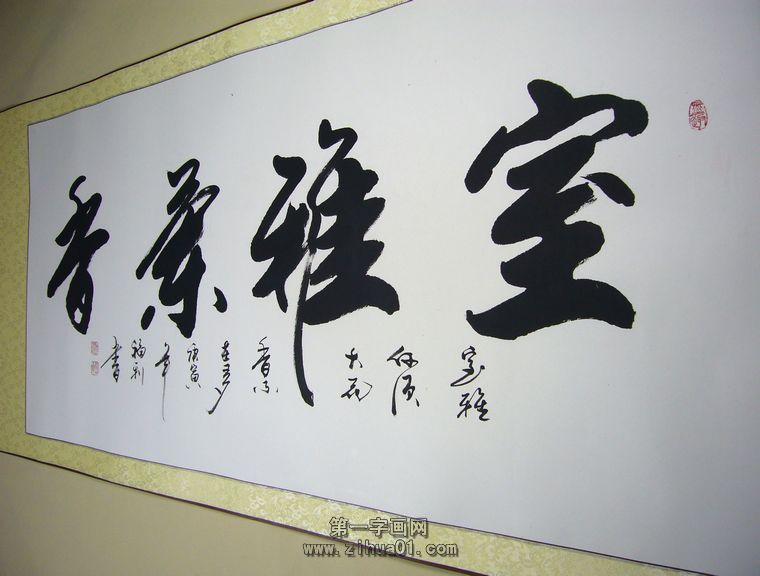 室雅兰香
室雅
何须
大花
香不
在多
庚寅
年
福利
书
第一字画网
www.zihua01.com